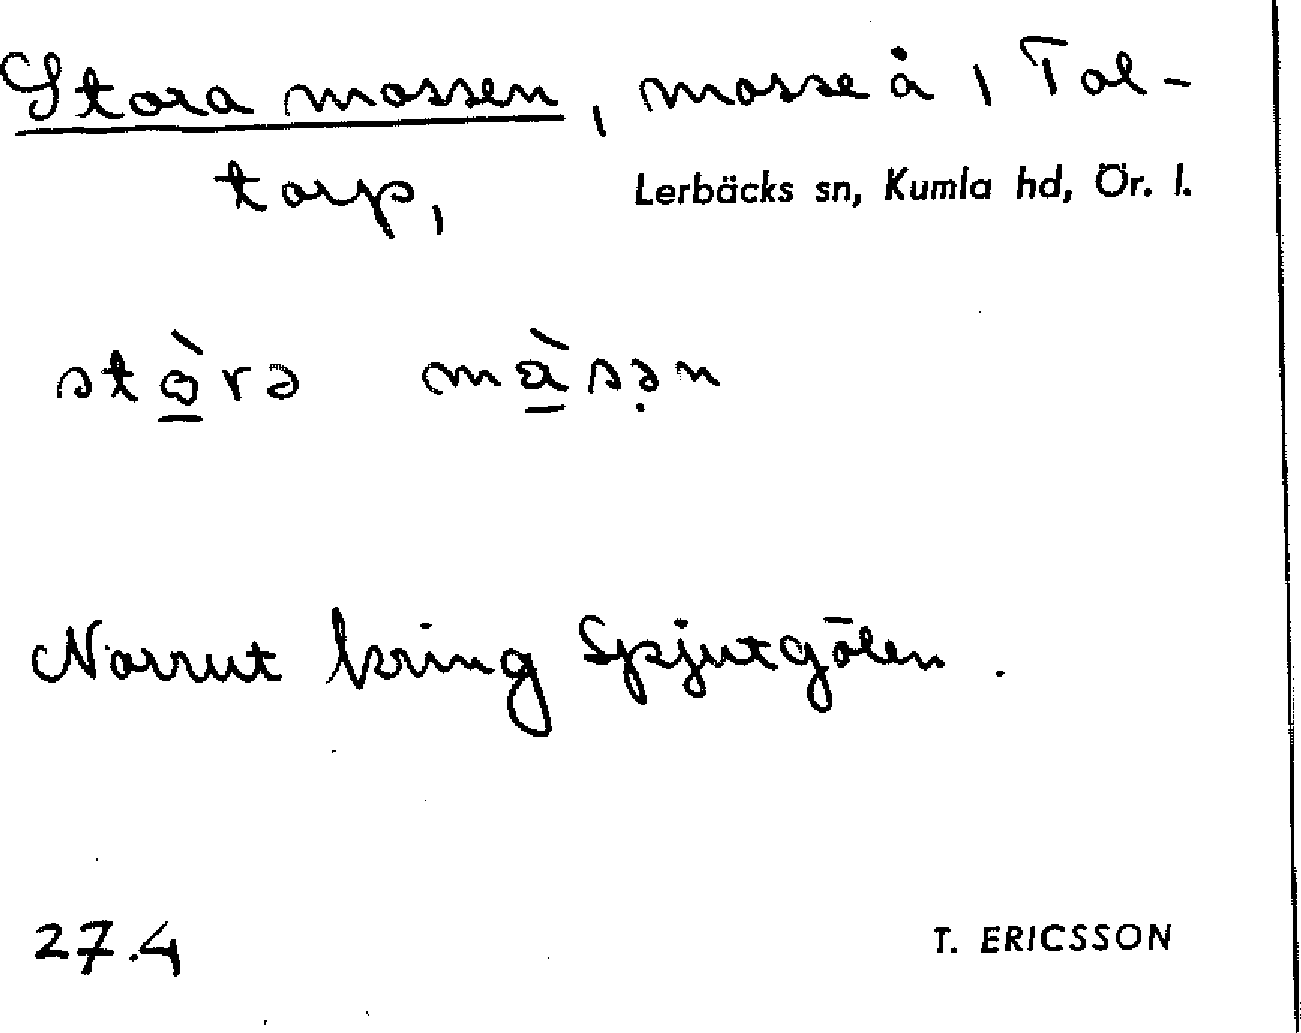 Stora mossen, mosse å 1 Tol-
torp, Lerbäcks sn, Kumla hd, Ör. l.
stò̲rə mà̲sə̣n
Norrut kring Spjutgölen.
27.4 T. ERICSSON